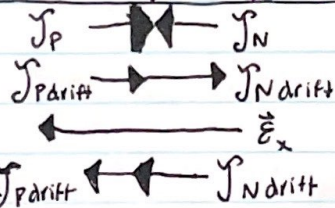 J_P J_N
J_Pdrift J_Ndrift
ε⃗_x
J_Pdrift J_Ndrift